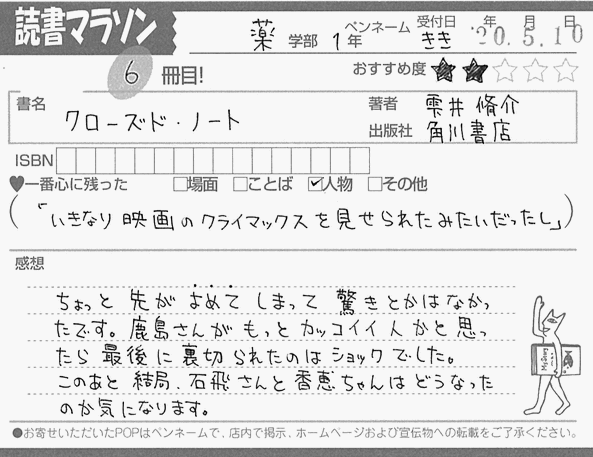 読書マラソン
薬 学部 1年 ペンネーム きき 受付日 20.5.10 年 月 日
6 冊目! おすすめ度 ★★☆☆☆
書名 クローズド・ノート
著者 雫井脩介
出版社 角川書店
ISBN
♥一番心に残った □場面 □ことば ☑人物 □その他
(「いきなり映画のクライマックスを見せられたみたいだったし」)
感想
ちょっと先がよめてしまって驚きとかはなかっ
たです。鹿島さんがもっとカッコイイ人かと思っ
たら最後に裏切られたのはショックでした。
このあと結局、石飛さんと香恵ちゃんはどうなった
のか気になります。
●お寄せいただいたPOPはペンネームで、店内で掲示、ホームページおよび宣伝物への転載をご了承ください。